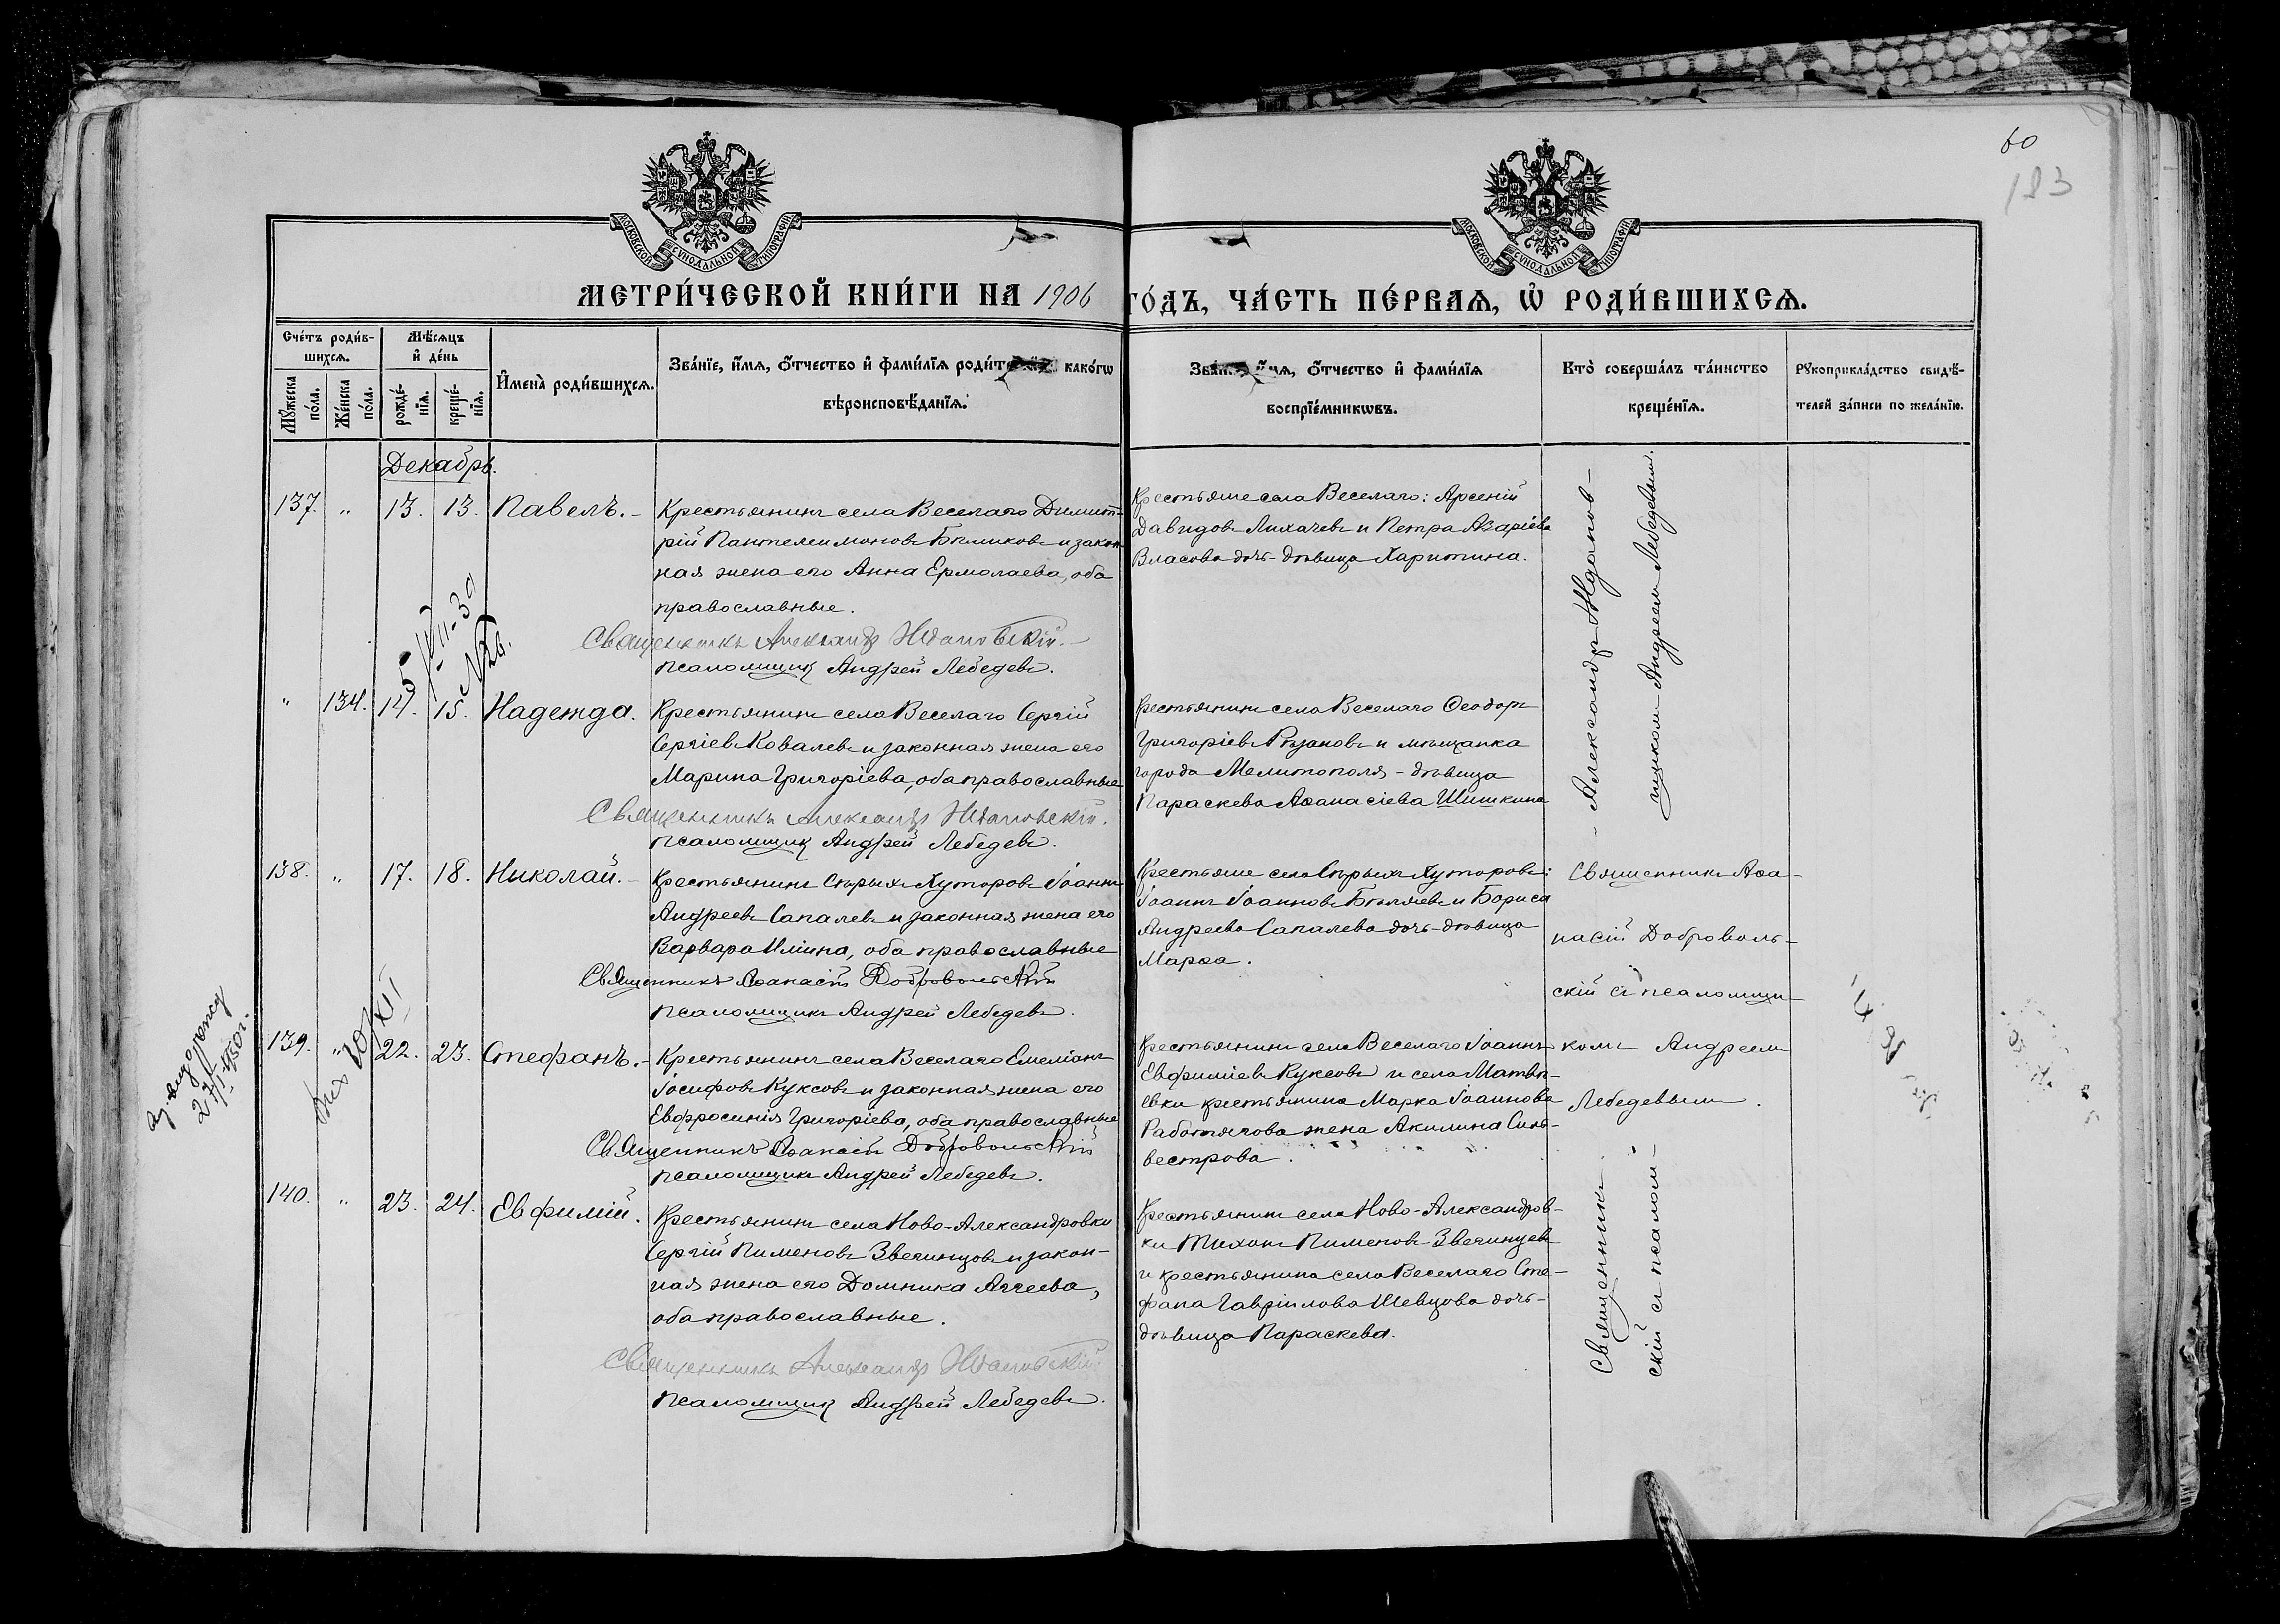 60
183
МОСКОВСКОЙ СѴНОДАЛЬНОЙ ТИПОГРАФІИ
МОСКОВСКОЙ СѴНОДАЛЬНОЙ ТИПОГРАФІИ
МЕТРИ́ЧЕСКОЙ КНИ́ГИ НА 1906 ГО́ДЪ, ЧА́СТЬ ПЕ́РВАЯ, Ѡ҆ РОДИ́ВШИХСѦ.
Сче́тъ роди́в-
шихсѧ.
Мꙋ́жеска
по́ла.
Же́нска
по́ла.
Мѣ́сѧцъ
и҆ де́нь
рожде́-
нїѧ.
креще́-
нїѧ.
И҆мена̀ роди́вшихсѧ.
Зва́нїе, и҆́мѧ, ѻ҆́тчество и҆ фами́лїѧ како́гѡ
вѣроисповѣ́данїѧ.
ѻ҆́тчество и҆ фами́лїѧ
воспрїе́мникѡвъ.
Кто̀ соверша́лъ та́инство
креще́нїѧ.
Рꙋкоприкла́дство свидѣ́-
телей за́писи по жела́нїю.
Декабрь.
137. " 13. 13. Павелъ. -
Крестьянинъ села Веселаго Димит-
рій Пантелеимоновъ Бѣликовъ и закон-
ная жена его Анна Ермолаева, оба
православные.
Священникъ Александръ Ждановскій.
Псаломщикъ Андрей Лебедевъ.
Крестьяне села Веселаго: Арсеній
Давидовъ Лихачевъ и Петра Азаріева
Власова дочь-дѣвица Харитина.
- Александръ Жданов-
щикомъ Андреем Лебедевым.
" 134. 14. 15. Надежда.
Крестьянинъ села Веселаго Сергій
Сергіевъ Ковалевъ и законная жена его
Марина Григоріева, оба православные
Священникъ Александръ Ждановскій.
Псаломщикъ Андрей Лебедевъ.
Крестьянинъ села Веселаго Ѳеодоръ
Григоріевъ Рѣзановъ и мѣщанка
города Мелитополя - дѣвица
Параскева Аѳанасіева Шишкина
138. " 17. 18. Николай. -
Крестьянинъ Сѣрыхъ Хуторовъ Іоаннъ
Андреевъ Сапалевъ и законная жена его
Варвара Иліина, оба православные
Священникъ Аѳанасій Добровольскій
Псаломщикъ Андрей Лебедевъ.
Крестьяне села Сѣрыхъ Хуторовъ:
Іоаннъ Іоанновъ Бѣляевъ и Бориса
Андреева Сапалева дочь-дѣвица
Марѳа.
Священникъ Аѳа-
насій Доброволь-
скій съ псаломщи-
комъ Андреем
Лебедевымъ.
139. " 22. 23. Стефанъ. -
Крестьянинъ села Веселаго Емеліанъ
Іосифовъ Куксовъ и законная жена его
Евфросинія Григоріева, оба православные
Священникъ Аѳанасій Добровольскій
Псаломщикъ Андрей Лебедевъ.
Крестьянинъ села Веселаго Іоаннъ
Евфиміевъ Куксовъ и села Матвѣ-
евки крестьянина Марка Іоаннова
Работягова жена Акилина Силь-
вестрова.
140. " 23. 24. Евфимій.
Крестьянинъ села Ново-Александровки
Сергій Пименовъ Звегинцовъ и закон-
ная жена его Домника Аггеева,
оба православные.
Священникъ Александръ Ждановскій
Псаломщикъ Андрей Лебедевъ.
Крестьянинъ села Ново-Александров-
ки Тихонъ Пименовъ Звегинцевъ
и крестьянина села Веселаго Сте-
фана Гавріилова Шевцова дочь-
дѣвица Параскева.
Священникъ
скій съ псалом-